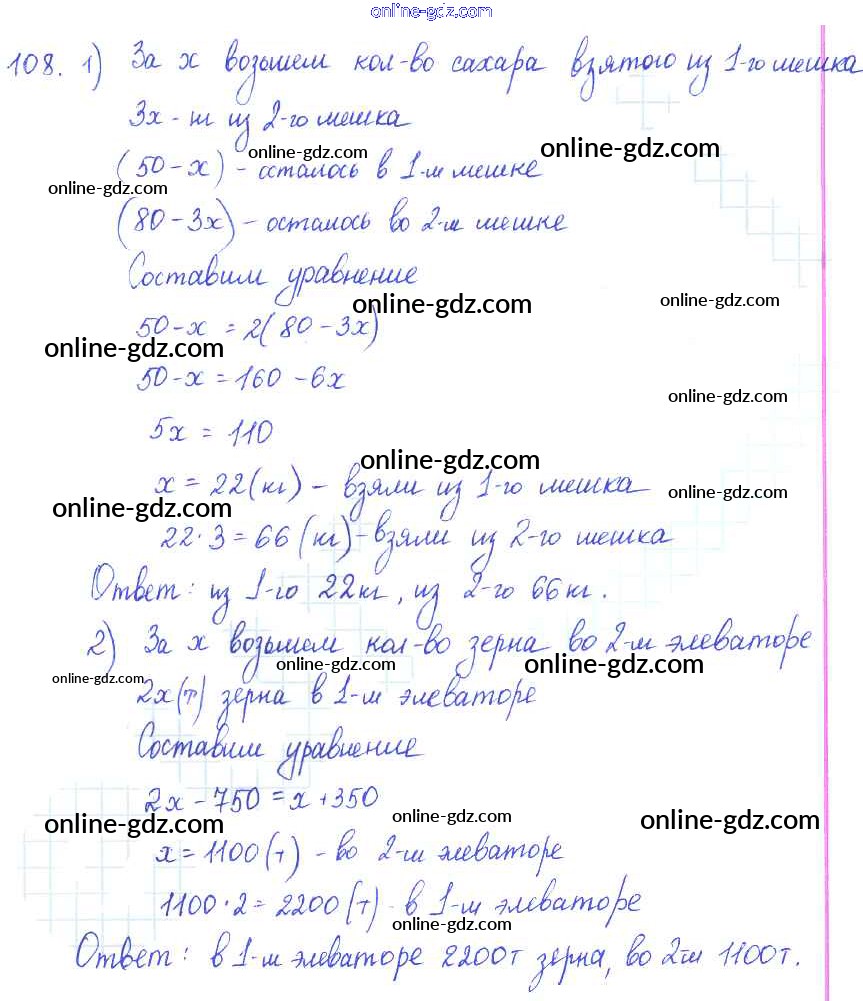 online-gdz.com
108. 1) За x возьмем кол-во сахара взятого из 1-го мешка
3x - ш из 2-го мешка
online-gdz.com
online-gdz.com
(50-x) - осталось в 1-м мешке
online-gdz.com
(80-3x) - осталось во 2-м мешке
Составим уравнение
online-gdz.com
online-gdz.com
50-x = 2(80-3x)
online-gdz.com
50-x = 160-6x
online-gdz.com
5x = 110
online-gdz.com
x = 22(кг) - взяли из 1-го мешка
online-gdz.com
online-gdz.com
22·3=66(кг)-взяли из 2-го мешка
Ответ: из 1-го 22кг, из 2-го 66кг.
2) За x возьмем кол-во зерна во 2-м элеваторе
online-gdz.com
online-gdz.com
online-gdz.com
2x(т) зерна в 1-м элеваторе
Составим уравнение
2x-750=x+350
online-gdz.com
online-gdz.com
online-gdz.com
x=1100(т) - во 2-м элеваторе
1100·2=2200(т) - в 1-м элеваторе
online-gdz.com
Ответ: в 1-м элеваторе 2200т зерна, во 2-м 1100т.